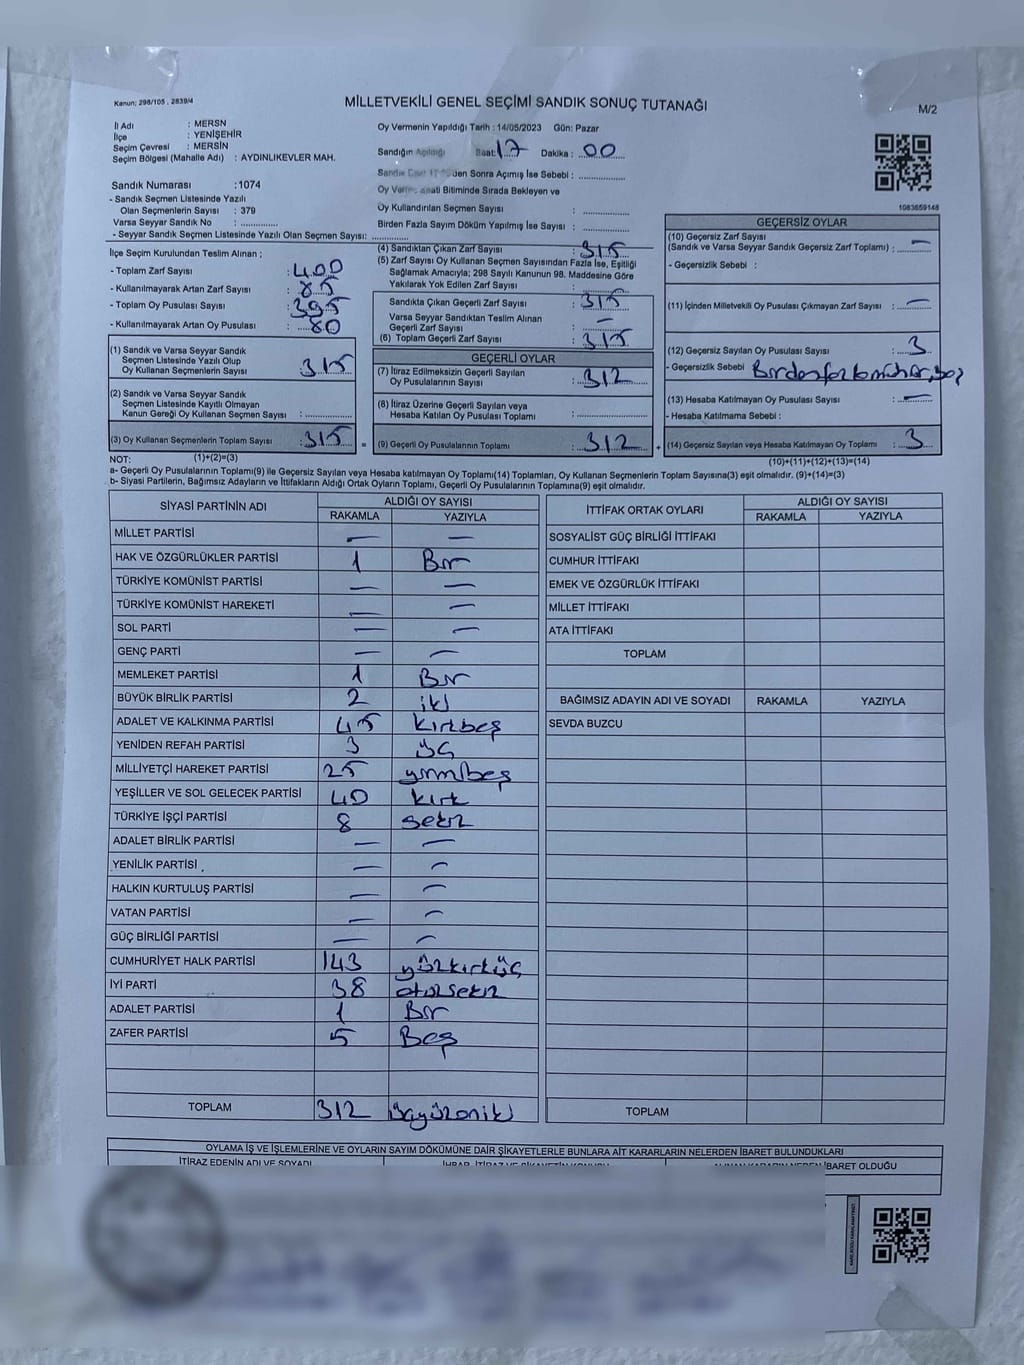 Kanun; 298/105 , 2839/4
MİLLETVEKİLİ GENEL SEÇİMİ SANDIK SONUÇ TUTANAĞI
M/2
İl Adı : MERSN
İlçe : YENİŞEHİR
Seçim Çevresi : MERSİN
Seçim Bölgesi (Mahalle Adı) : AYDINLIKEVLER MAH.
Sandık Numarası :1074
- Sandık Seçmen Listesinde Yazılı
Olan Seçmenlerin Sayısı : 379
Varsa Seyyar Sandık No : ..............
- Seyyar Sandık Seçmen Listesinde Yazılı Olan Seçmen Sayısı: ..............
İlçe Seçim Kurulundan Teslim Alınan ;
- Toplam Zarf Sayısı : 400
- Kullanılmayarak Artan Zarf Sayısı : 85
- Toplam Oy Pusulası Sayısı : 395
- Kullanılmayarak Artan Oy Pusulası : 80
(1) Sandık ve Varsa Seyyar Sandık
Seçmen Listesinde Yazılı Olup
Oy Kullanan Seçmenlerin Sayısı : 315
(2) Sandık ve Varsa Seyyar Sandık
Seçmen Listesinde Kayıtlı Olmayan
Kanun Gereği Oy Kullanan Seçmen Sayısı : ..............
(3) Oy Kullanan Seçmenlerin Toplam Sayısı : 315 =
Oy Vermenin Yapıldığı Tarih : 14/05/2023 Gün: Pazar
Sandığın Açıldığı Saat: 17 Dakika : 00
den Sonra Açımış İse Sebebi : ..............
Oy Bitiminde Sırada Bekleyen ve
Oy Kullandırılan Seçmen Sayısı : ..............
Birden Fazla Sayım Döküm Yapılmış İse Sayısı : ..............
(4) Sandıktan Çıkan Zarf Sayısı : 315
(5) Zarf Sayısı Oy Kullanan Seçmen Sayısından Fazla İse, Eşitliği
Sağlamak Amacıyla; 298 Sayılı Kanunun 98. Maddesine Göre
Yakılarak Yok Edilen Zarf Sayısı : ..............
Sandıkta Çıkan Geçerli Zarf Sayısı : 315
Varsa Seyyar Sandıktan Teslim Alınan
Geçerli Zarf Sayısı : —
(6) Toplam Geçerli Zarf Sayısı : 315
GEÇERLİ OYLAR
(7) İtiraz Edilmeksizin Geçerli Sayılan
Oy Pusulalarının Sayısı : 312
(8) İtiraz Üzerine Geçerli Sayılan veya
Hesaba Katılan Oy Pusulaları Toplamı : ..............
(9) Geçerli Oy Pusulalarının Toplamı : 312 +
1083659148
GEÇERSİZ OYLAR
(10) Geçersiz Zarf Sayısı
(Sandık ve Varsa Seyyar Sandık Geçersiz Zarf Toplamı) : —
- Geçersizlik Sebebi :
(11) İçinden Milletvekili Oy Pusulası Çıkmayan Zarf Sayısı : —
(12) Geçersiz Sayılan Oy Pusulası Sayısı : 3
- Geçersizlik Sebebi
(13) Hesaba Katılmayan Oy Pusulası Sayısı : —
- Hesaba Katılmama Sebebi :
(14) Geçersiz Sayılan veya Hesaba Katılmayan Oy Toplamı : 3
NOT: (1)+(2)=(3)
(10)+(11)+(12)+(13)=(14)
a- Geçerli Oy Pusulalarının Toplamı(9) ile Geçersiz Sayılan veya Hesaba Katılmayan Oy Toplamı(14) Toplamları, Oy Kullanan Seçmenlerin Toplam Sayısına(3) eşit olmalıdır. (9)+(14)=(3)
b- Siyasi Partilerin, Bağımsız Adayların ve İttifakların Aldığı Ortak Oyların Toplamı, Geçerli Oy Pusulalarının Toplamına(9) eşit olmalıdır.
SİYASİ PARTİNİN ADI ALDIĞI OY SAYISI
RAKAMLA YAZIYLA
MİLLET PARTİSİ — —
HAK VE ÖZGÜRLÜKLER PARTİSİ 1 Bir
TÜRKİYE KOMÜNİST PARTİSİ — —
TÜRKİYE KOMÜNİST HAREKETİ — —
SOL PARTİ — —
GENÇ PARTİ — —
MEMLEKET PARTİSİ 1 Bir
BÜYÜK BİRLİK PARTİSİ 2 iki
ADALET VE KALKINMA PARTİSİ 45 kırkbeş
YENİDEN REFAH PARTİSİ 3 üç
MİLLİYETÇİ HAREKET PARTİSİ 25 yirmibeş
YEŞİLLER VE SOL GELECEK PARTİSİ 40 kırk
TÜRKİYE İŞÇİ PARTİSİ 8 sekiz
ADALET BİRLİK PARTİSİ — —
YENİLİK PARTİSİ — —
HALKIN KURTULUŞ PARTİSİ — —
VATAN PARTİSİ — —
GÜÇ BİRLİĞİ PARTİSİ — —
CUMHURİYET HALK PARTİSİ 143 yüzkırküç
İYİ PARTİ 38 otuzsekiz
ADALET PARTİSİ 1 Bir
ZAFER PARTİSİ 5 Beş
TOPLAM 312 üçyüzoniki
İTTİFAK ORTAK OYLARI ALDIĞI OY SAYISI
RAKAMLA YAZIYLA
SOSYALİST GÜÇ BİRLİĞİ İTTİFAKI
CUMHUR İTTİFAKI
EMEK VE ÖZGÜRLÜK İTTİFAKI
MİLLET İTTİFAKI
ATA İTTİFAKI
TOPLAM
BAĞIMSIZ ADAYIN ADI VE SOYADI RAKAMLA YAZIYLA
SEVDA BUZCU
TOPLAM
OYLAMA İŞ VE İŞLEMLERİNE VE OYLARIN SAYIM DÖKÜMÜNE DAİR ŞİKAYETLERLE BUNLARA AİT KARARLARIN NELERDEN İBARET BULUNDUKLARI
İTİRAZ EDENİN ADI VE SOYADI İHBAR, İTİRAZ VE ŞİKAYETİN KONUSU ALINAN KARARIN NEDEN İBARET OLDUĞU